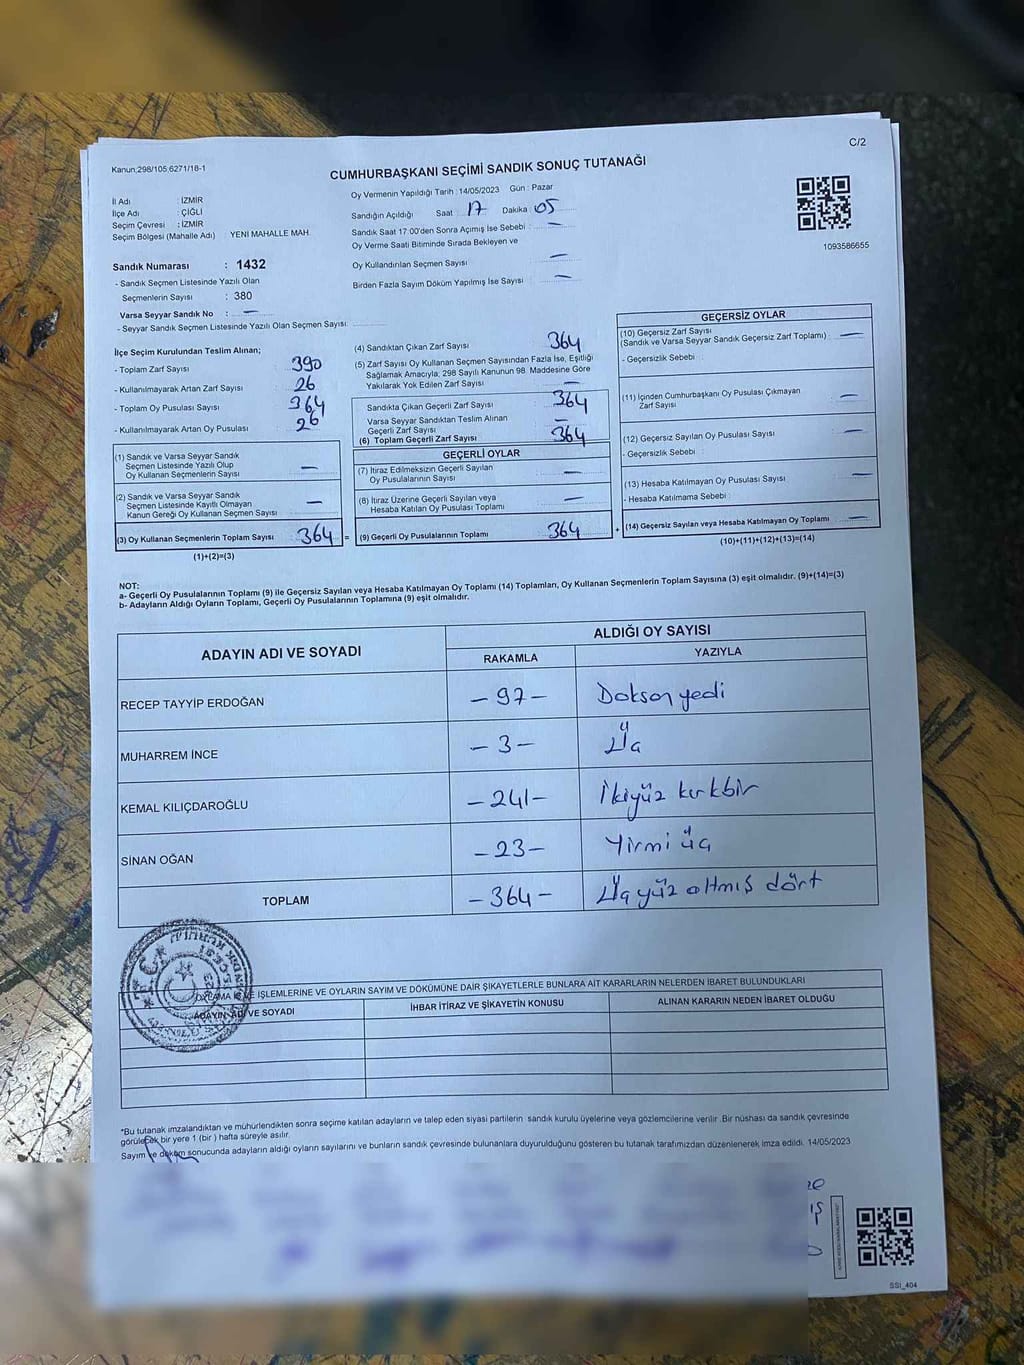 Kanun;298/105;6271/18-1
C/2
CUMHURBAŞKANI SEÇİMİ SANDIK SONUÇ TUTANAĞI
İl Adı : İZMİR
İlçe Adı : ÇİĞLİ
Seçim Çevresi : İZMİR
Seçim Bölgesi (Mahalle Adı) : YENİ MAHALLE MAH.
Sandık Numarası : 1432
- Sandık Seçmen Listesinde Yazılı Olan
Seçmenlerin Sayısı : 380
Varsa Seyyar Sandık No : —
- Seyyar Sandık Seçmen Listesinde Yazılı Olan Seçmen Sayısı:
Oy Vermenin Yapıldığı Tarih : 14/05/2023 Gün : Pazar
Sandığın Açıldığı Saat : 17 Dakika : 05
Sandık Saat 17:00'den Sonra Açımış İse Sebebi : —
Oy Verme Saati Bitiminde Sırada Bekleyen ve
Oy Kullandırılan Seçmen Sayısı —
Birden Fazla Sayım Döküm Yapılmış İse Sayısı : —
1093586655
İlçe Seçim Kurulundan Teslim Alınan;
- Toplam Zarf Sayısı : 390
- Kullanılmayarak Artan Zarf Sayısı : 26
- Toplam Oy Pusulası Sayısı : 364
- Kullanılmayarak Artan Oy Pusulası : 26
(1) Sandık ve Varsa Seyyar Sandık
Seçmen Listesinde Yazılı Olup
Oy Kullanan Seçmenlerin Sayısı : —
(2) Sandık ve Varsa Seyyar Sandık
Seçmen Listesinde Kayıtlı Olmayan
Kanun Gereği Oy Kullanan Seçmen Sayısı : —
(3) Oy Kullanan Seçmenlerin Toplam Sayısı : 364 =
(1)+(2)=(3)
(4) Sandıktan Çıkan Zarf Sayısı : 364
(5) Zarf Sayısı Oy Kullanan Seçmen Sayısından Fazla İse, Eşitliği
Sağlamak Amacıyla; 298 Sayılı Kanunun 98. Maddesine Göre
Yakılarak Yok Edilen Zarf Sayısı : —
Sandıkta Çıkan Geçerli Zarf Sayısı : 364
Varsa Seyyar Sandıktan Teslim Alınan
Geçerli Zarf Sayısı : —
(6) Toplam Geçerli Zarf Sayısı : 364
GEÇERLİ OYLAR
(7) İtiraz Edilmeksizin Geçerli Sayılan
Oy Pusulasının Sayısı : —
(8) İtiraz Üzerine Geçerli Sayılan veya
Hesaba Katılan Oy Pusulası Toplamı : —
(9) Geçerli Oy Pusulalarının Toplamı : 364 +
GEÇERSİZ OYLAR
(10) Geçersiz Zarf Sayısı
(Sandık ve Varsa Seyyar Sandık Geçersiz Zarf Toplamı) : —
- Geçersizlik Sebebi :
(11) İçinden Cumhurbaşkanı Oy Pusulası Çıkmayan
Zarf Sayısı : —
(12) Geçersiz Sayılan Oy Pusulası Sayısı : —
- Geçersizlik Sebebi :
(13) Hesaba Katılmayan Oy Pusulası Sayısı : —
- Hesaba Katılmama Sebebi :
(14) Geçersiz Sayılan veya Hesaba Katılmayan Oy Toplamı : —
(10)+(11)+(12)+(13)=(14)
NOT:
a- Geçerli Oy Pusulalarının Toplamı (9) ile Geçersiz Sayılan veya Hesaba Katılmayan Oy Toplamı (14) Toplamları, Oy Kullanan Seçmenlerin Toplam Sayısına (3) eşit olmalıdır. (9)+(14)=(3)
b- Adayların Aldığı Oyların Toplamı, Geçerli Oy Pusulalarının Toplamına (9) eşit olmalıdır.
ADAYIN ADI VE SOYADI
ALDIĞI OY SAYISI
RAKAMLA
YAZIYLA
RECEP TAYYİP ERDOĞAN – 97 – Doksan yedi
MUHARREM İNCE – 3 – Üç
KEMAL KILIÇDAROĞLU – 241 – İkiyüz kırkbir
SİNAN OĞAN – 23 – Yirmi üç
TOPLAM – 364 – Üçyüz altmış dört
İŞLEMLERİNE VE OYLARIN SAYIM VE DÖKÜMÜNE DAİR ŞİKAYETLERLE BUNLARA AİT KARARLARIN NELERDEN İBARET BULUNDUKLARI
ADAYIN ADI VE SOYADI
İHBAR İTİRAZ VE ŞİKAYETİN KONUSU
ALINAN KARARIN NEDEN İBARET OLDUĞU
*Bu tutanak imzalandıktan ve mühürlendikten sonra seçime katılan adayların ve talep eden siyasi partilerin sandık kurulu üyelerine veya gözlemcilerine verilir .Bir nüshası da sandık çevresinde
görülecek bir yere 1 (bir ) hafta süreyle asılır.
Sayım ve döküm sonucunda adayların aldığı oyların sayılarını ve bunların sandık çevresinde bulunanlara duyurulduğunu gösteren bu tutanak tarafımızdan düzenlenerek imza edildi. 14/05/2023
SSI_404